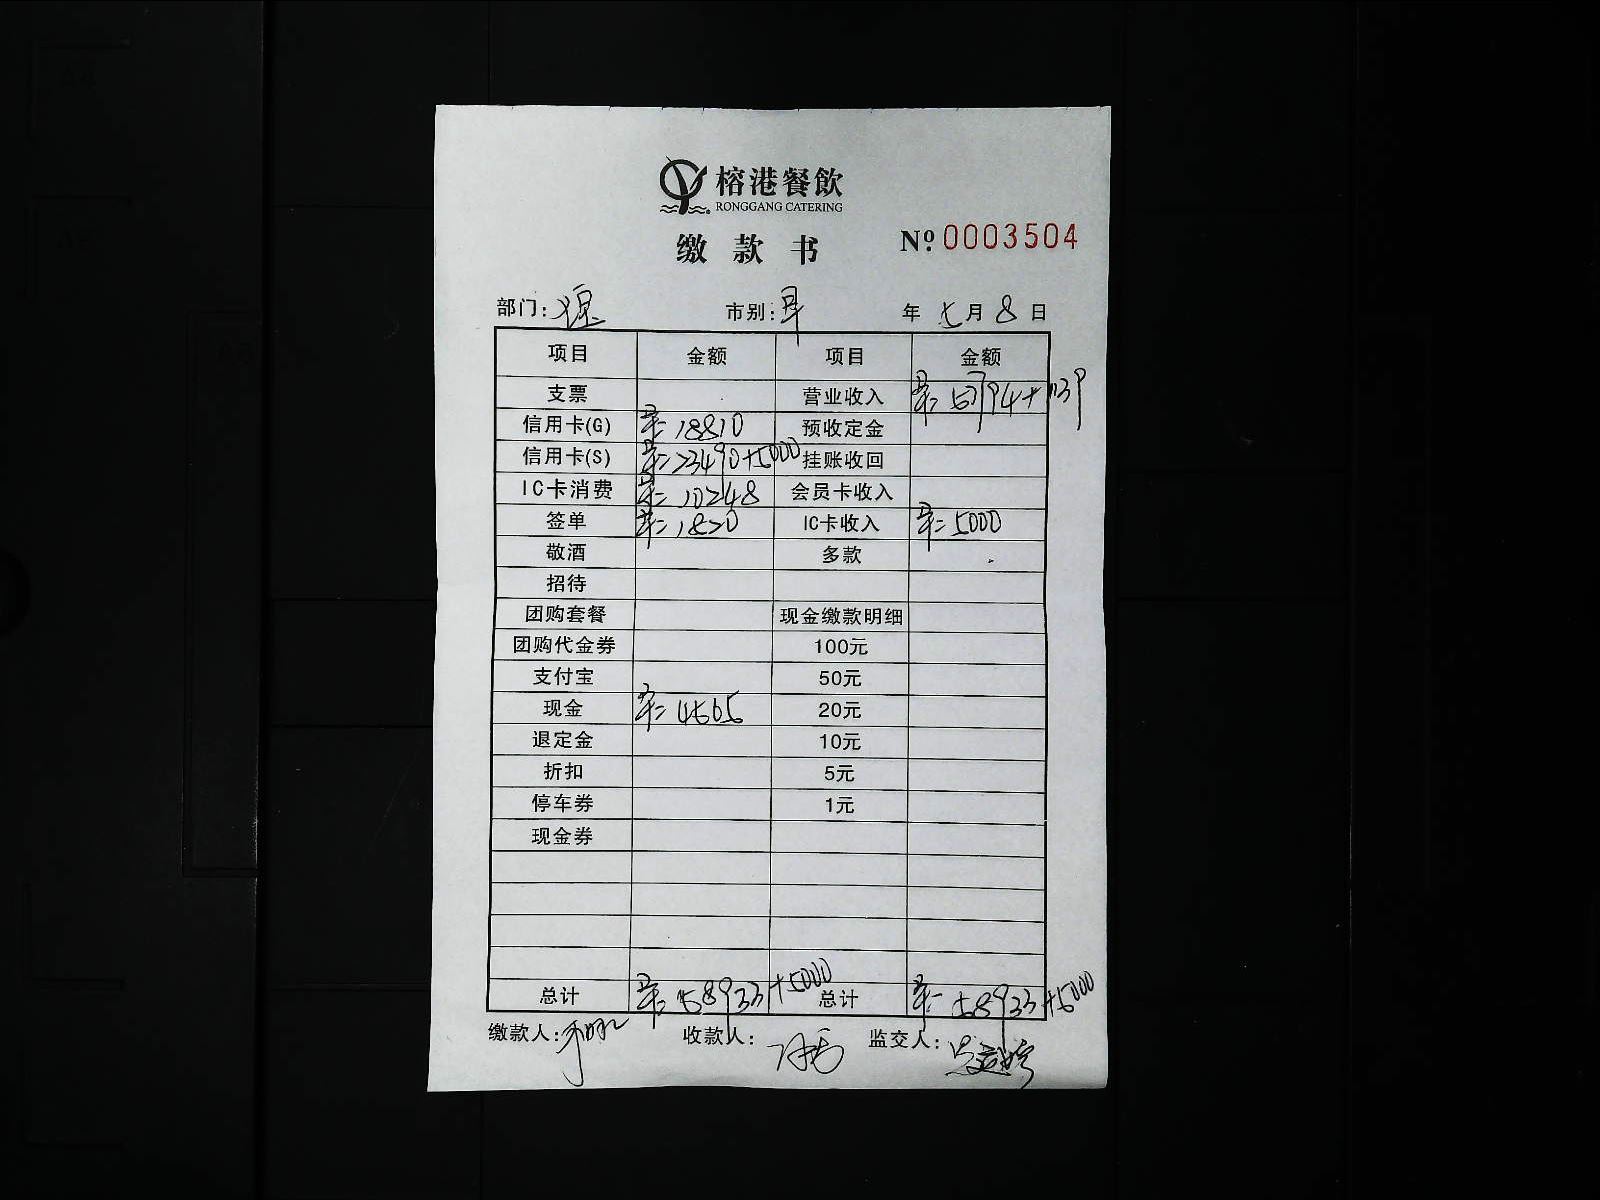 榕港餐飲
RONGGANG CATERING
缴款书 Nº 0003504
部门: 市别: 年 七月 8 日
项目 金额 项目 金额
支票 营业收入 57794+1139
信用卡(G) 18810 预收定金
信用卡(S) 23490+5000 挂账收回
IC卡消费 10248 会员卡收入
签单 1820 IC卡收入 5000
敬酒 多款
招待
团购套餐 现金缴款明细
团购代金券 100元
支付宝 50元
现金 4565 20元
退定金 10元
折扣 5元
停车券 1元
现金券
总计 58933+5000 总计 58933+5000
缴款人: 收款人: 监交人: